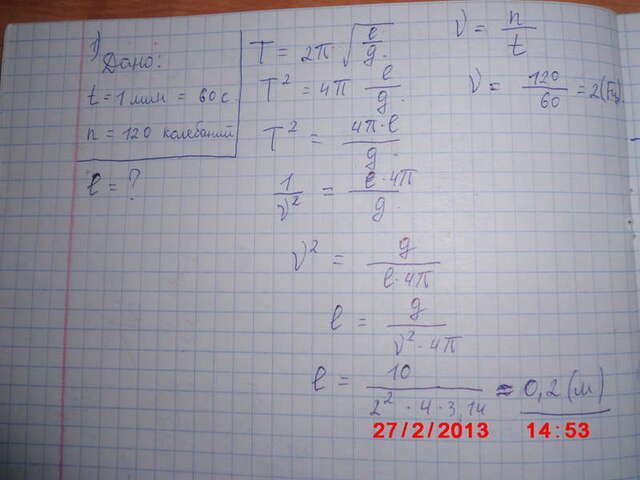 1) Дано:
t = 1 мин = 60 с
n = 120 колебаний
l = ?
T = 2π √(l/g)
T² = 4π l/g
T² = 4π·l/g
1/ν² = l·4π/g
ν² = g/(l·4π)
l = g/(ν²·4π)
l = 10/(2²·4·3,14) = 0,2 (м)
ν = n/t
ν = 120/60 = 2 (Гц)
27/2/2013 14:53